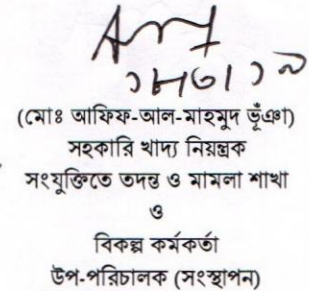 (মোঃ আফিফ-আল-মাহমুদ ভূঁঞা)
সহকারি খাদ্য নিয়ন্ত্রক
সংযুক্তিতে তদন্ত ও মামলা শাখা
ও
বিকল্প কর্মকর্তা
উপ-পরিচালক (সংস্থাপন)